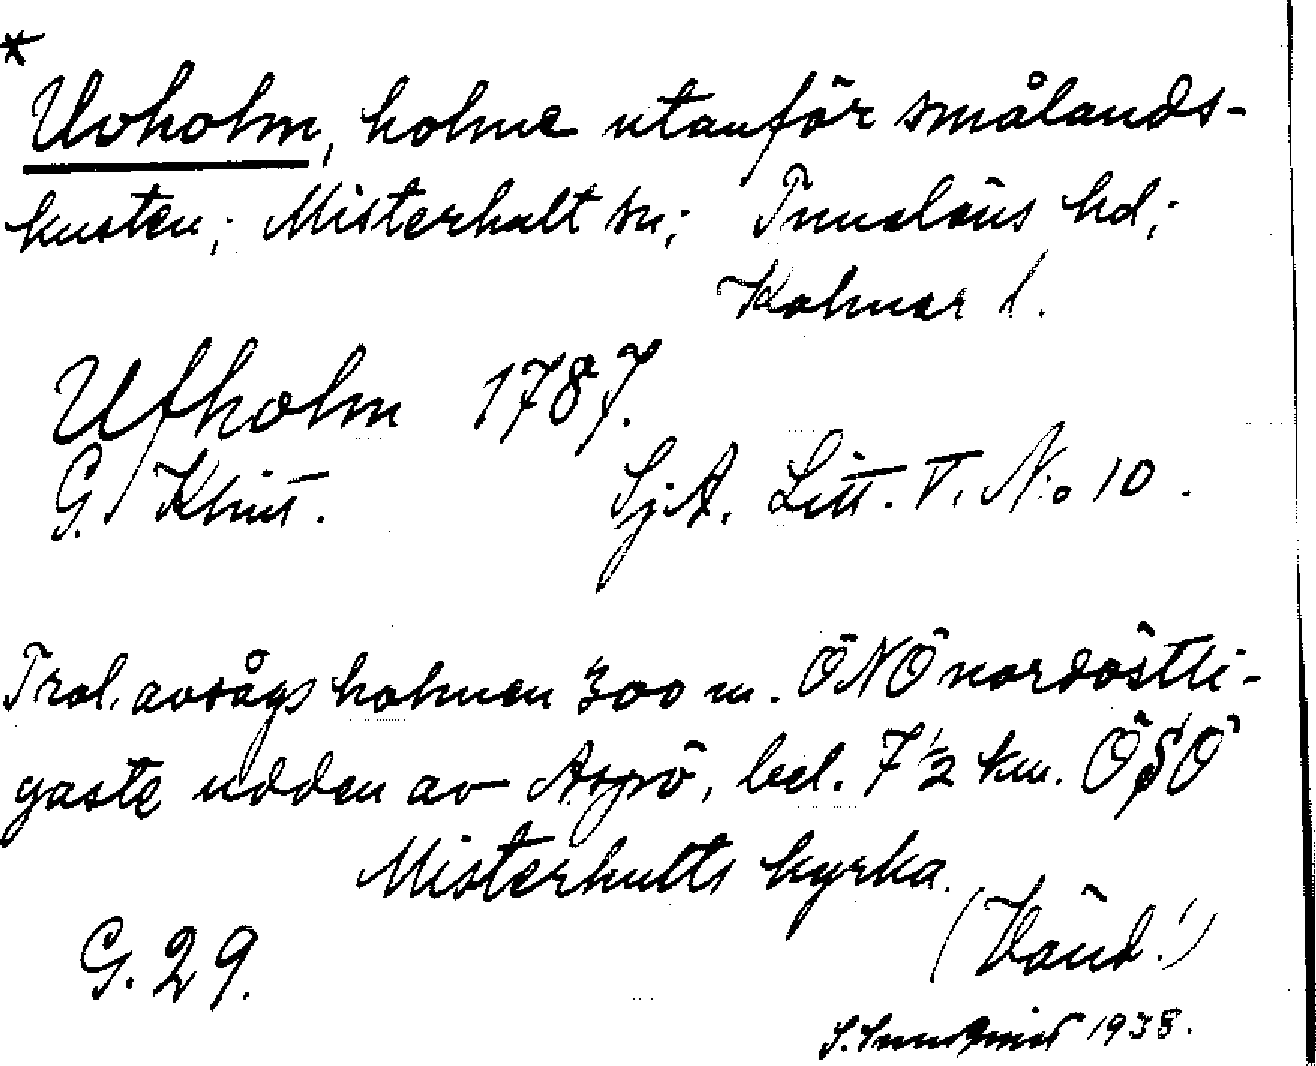 *
Uvholm, holme utanför smålands-
kusten; Misterhult sn; Tunaläns hd;
Kalmar l.
Ufholm 1787.
G. Klint. SjA. Litt. V. N:o 10.
Trol. avsågs holmen 300 m. ÖNÖ nordöstli-
gaste udden av Äspö, bel. 7 1/2 km. ÖSÖ
Misterhults kyrka.
(Vänd!)
G. 29.
1938.